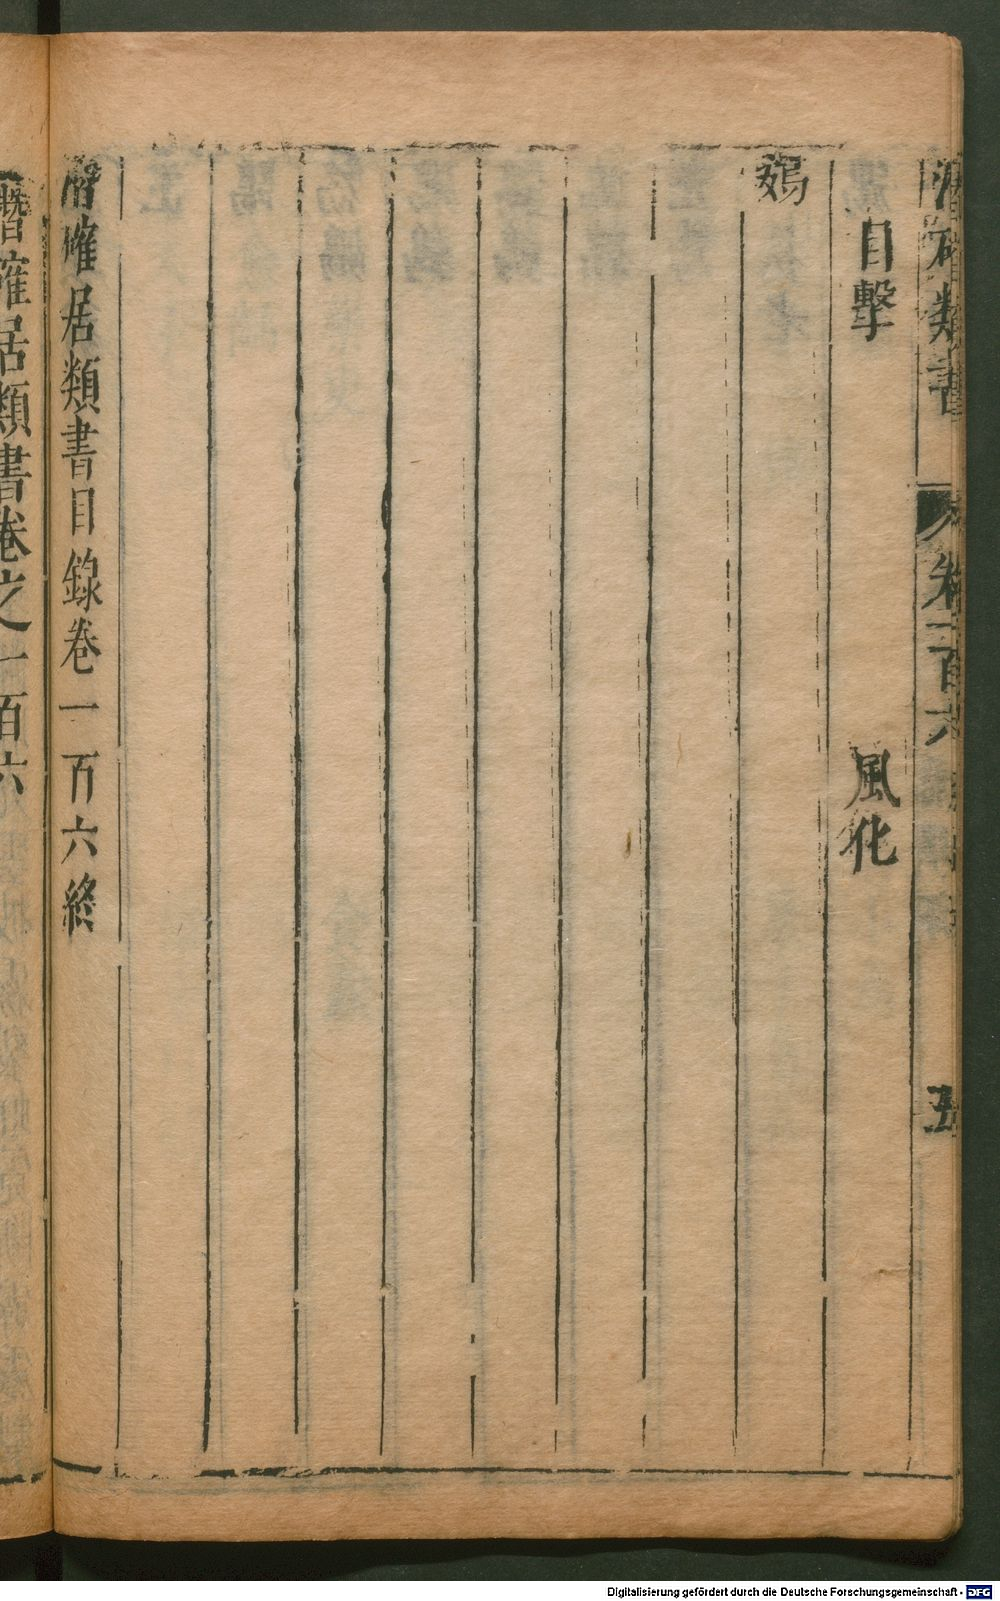 潛確類書
卷一百六
五
目擊
風化
鵶
潛確居類書目錄卷一百六終
潛確居類書卷之一百六
Digitalisierung gefördert durch die Deutsche Forschungsgemeinschaft - DFG